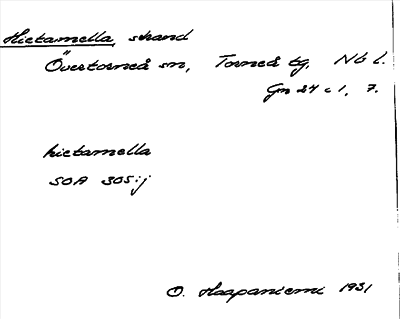 Hietamella, strand
Övertorneå sn, Torneå tg. Nb l.
Gn 24 c 1, 7.
hietamella
SOA 305:j
O. Haapaniemi 1931